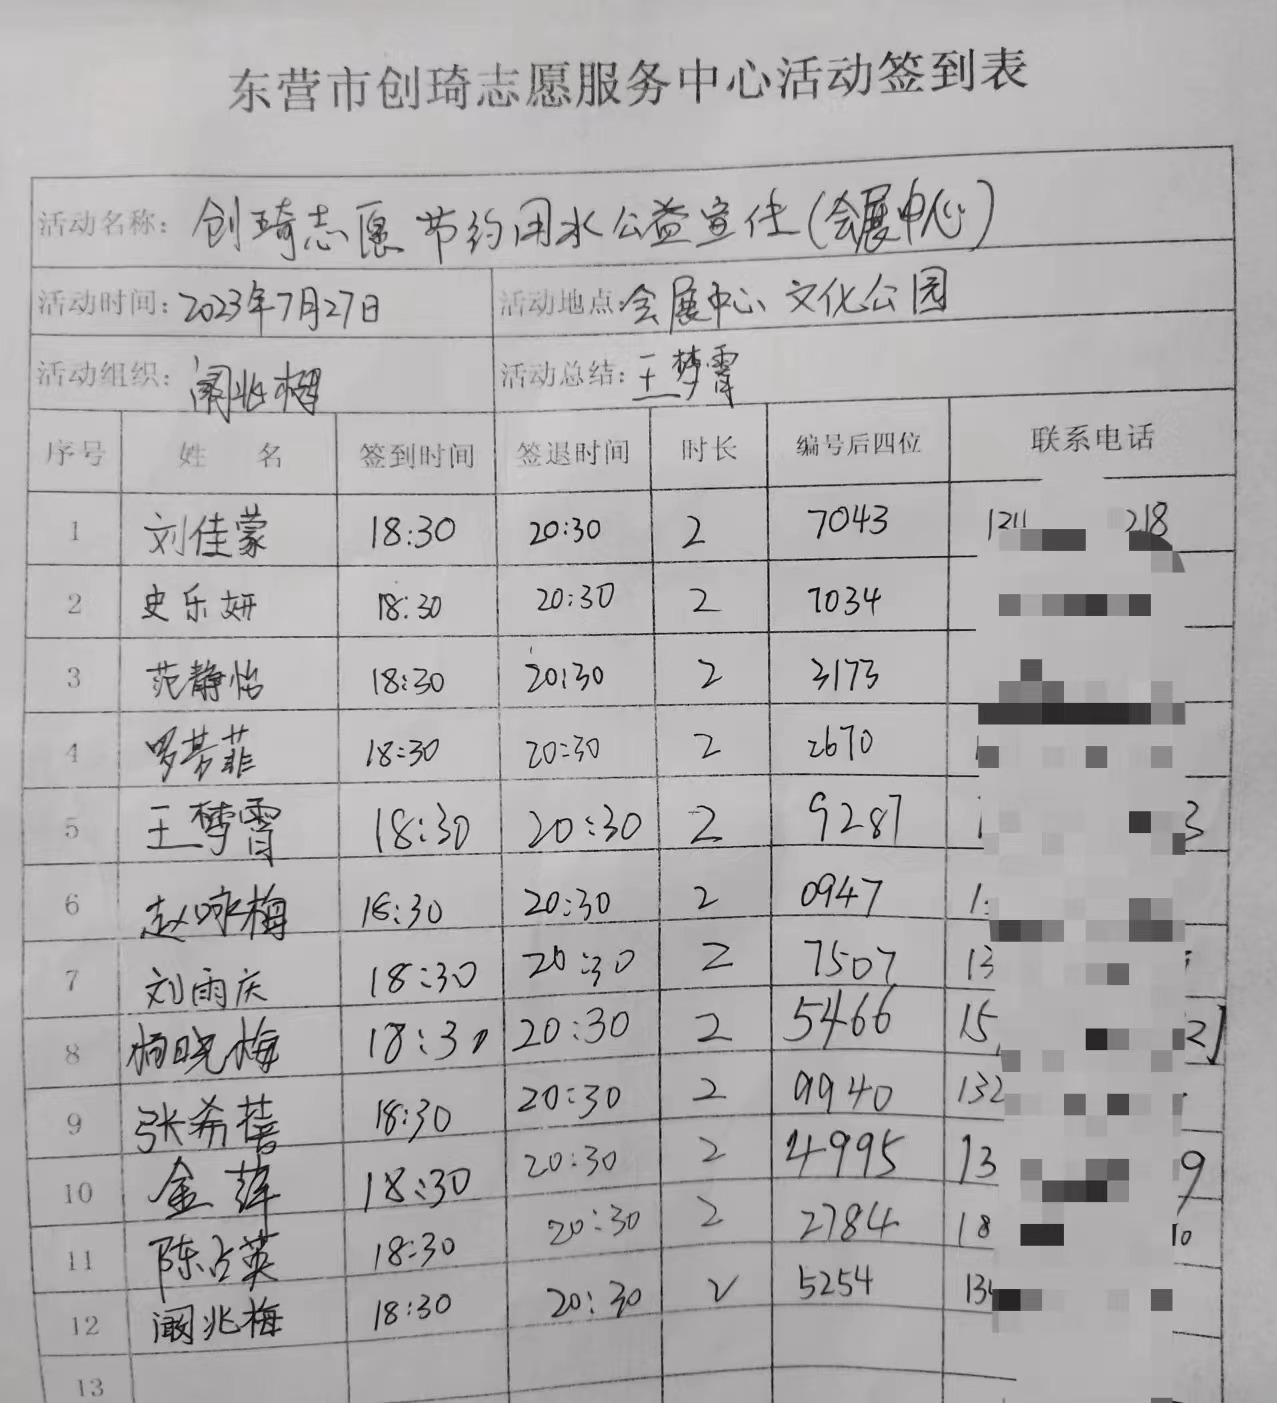 东营市创琦志愿服务中心活动签到表
活动名称：创琦志愿 节约用水公益宣传(会展中心)
活动时间：2023年7月27日 活动地点：会展中心 文化公园
活动组织：阚兆梅 活动总结：王梦霄
序号 姓 名 签到时间 签退时间 时长 编号后四位 联系电话
1 刘佳蒙 18:30 20:30 2 7043 218
2 史乐妍 18:30 20:30 2 7034
3 范静怡 18:30 20:30 2 3173
4 罗梦菲 18:30 20:30 2 2670
5 王梦霄 18:30 20:30 2 9287 3
6 赵咏梅 18:30 20:30 2 0947 1
7 刘雨庆 18:30 20:30 2 7507 13
8 杨晓梅 18:30 20:30 2 5466 15
9 张希蓓 18:30 20:30 2 9940 132
10 金萍 18:30 20:30 2 4995 13 9
11 陈占英 18:30 20:30 2 2784 18 10
12 阚兆梅 18:30 20:30 2 5254 134
13